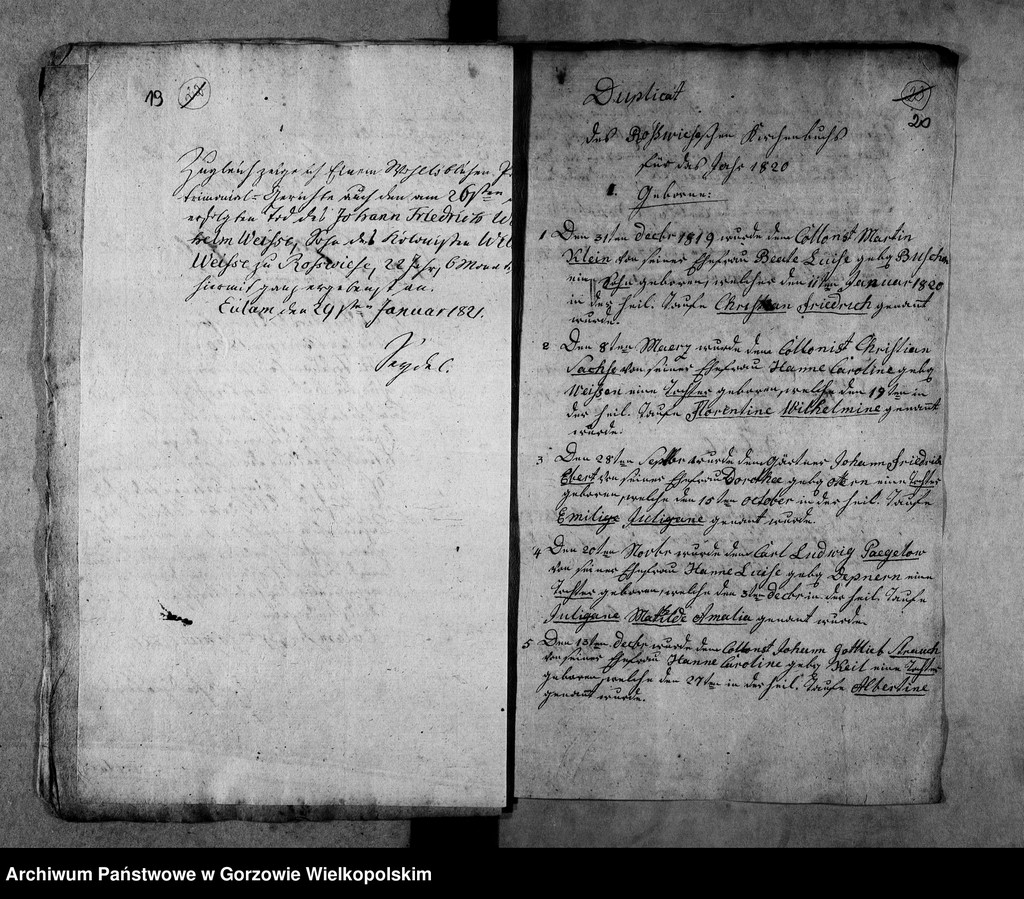 19 22
Zugleich zeige ich Einem Wohllöblichen P
trimonial-Gerichte auch den am 26sten
erfolgten Tod des Johann Friedrich Wil
helm Weihse, Sohn des Kolonisten Wil
Weihse zu Roßwiese, 22 Jahr, 6 Monat
hiermit ganz ergebenst an.
Eulam, den 29sten Januar 1821.
Seydel.
23
20
Duplicat
des Roßwieseschen Kirchenbuchs
für das Jahr 1820
1. Geborne:
1 Den 31ten decbr 1819 wurde dem Collonist Martin
Klein von seiner Ehefrau Beate Luise gebg Busch
ein Sohn geboren, welcher den 11ten Januar 1820
in der heil. Taufe Christian Friedrich genannt
wurde.
2 Den 8ten Maerz wurde dem Collonist Christian
Sachse von seiner Ehefrau Hanne Caroline gebg
Weissen eine Tochter geboren, welche den 19ten in
der heil. Taufe Florentine Wilhelmine genannt
wurde.
3 Den 28ten Septbr wurde dem Gärtner Johann Friedrich
Ebert von seiner Ehefrau Dorothee gebg eine Tochter
geboren, welche den 15ten October in der heil. Taufe
Emilige Juligane genant wurde.
4 Den 20ten Novbr wurde dem Carl Ludwig Paegelow
von seiner Ehefrau Hanne Luise gebg Depnern eine
Tochter geboren, welche den 3ten decbr in der heil. Taufe
Juligane Matilde Amalia genant wurde.
5 Den 13ten decbr wurde dem Collonist Johann Gottlieb Strauch
von seiner Ehefrau Hanne Caroline gebg Keil eine Tochter
geboren, welche den 27ten in der heil. Taufe Albertine
genannt wurde.
Archiwum Państwowe w Gorzowie Wielkopolskim